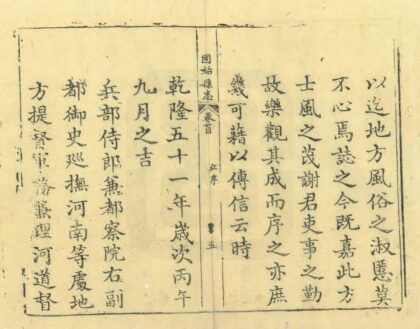 以迄地方風俗之淑慝莫
不心焉誌之今既嘉此方
士風之茂謝君吏事之勤
故樂觀其成而序之亦庶
幾可藉以傳信云時
固始縣志
卷首
序
五
乾隆五十一年歲次丙午
九月之吉
兵部侍郎兼都察院右副
都御史巡撫河南等處地
方提督軍務兼理河道督